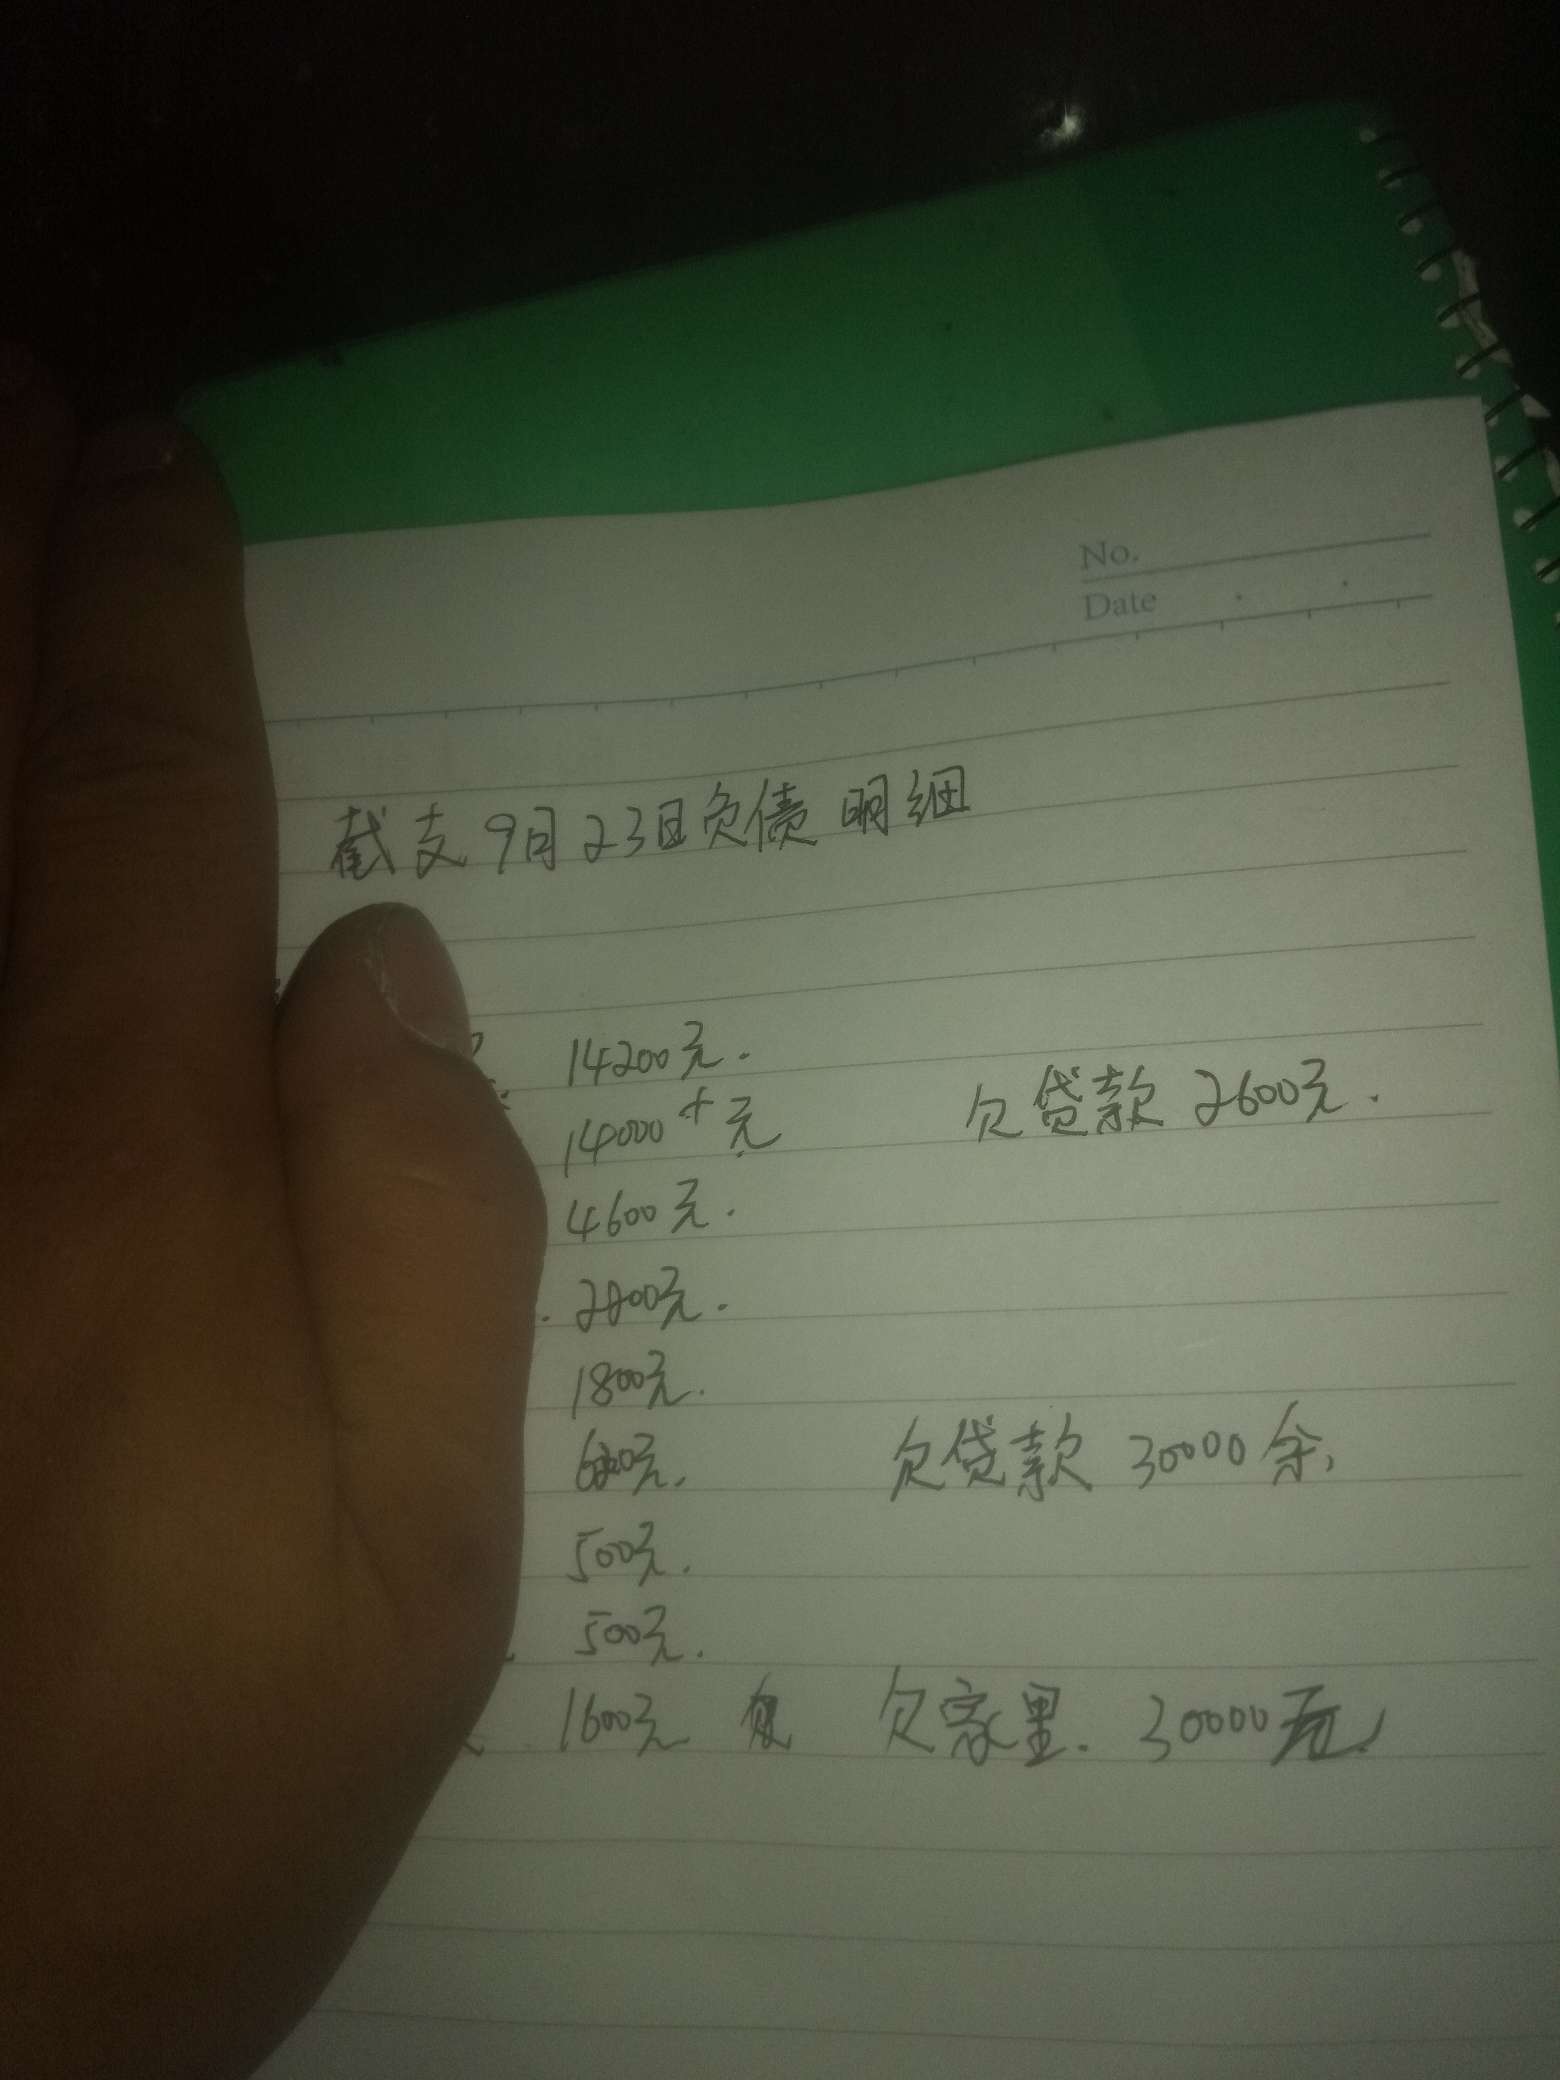 No.
Date
截支9月23日负债明细
14200元.
14000+元 欠贷款2600元.
4600元.
2800元.
1800元.
元. 欠贷款 30000余,
500元.
500元.
1600元 欠家里. 30000元